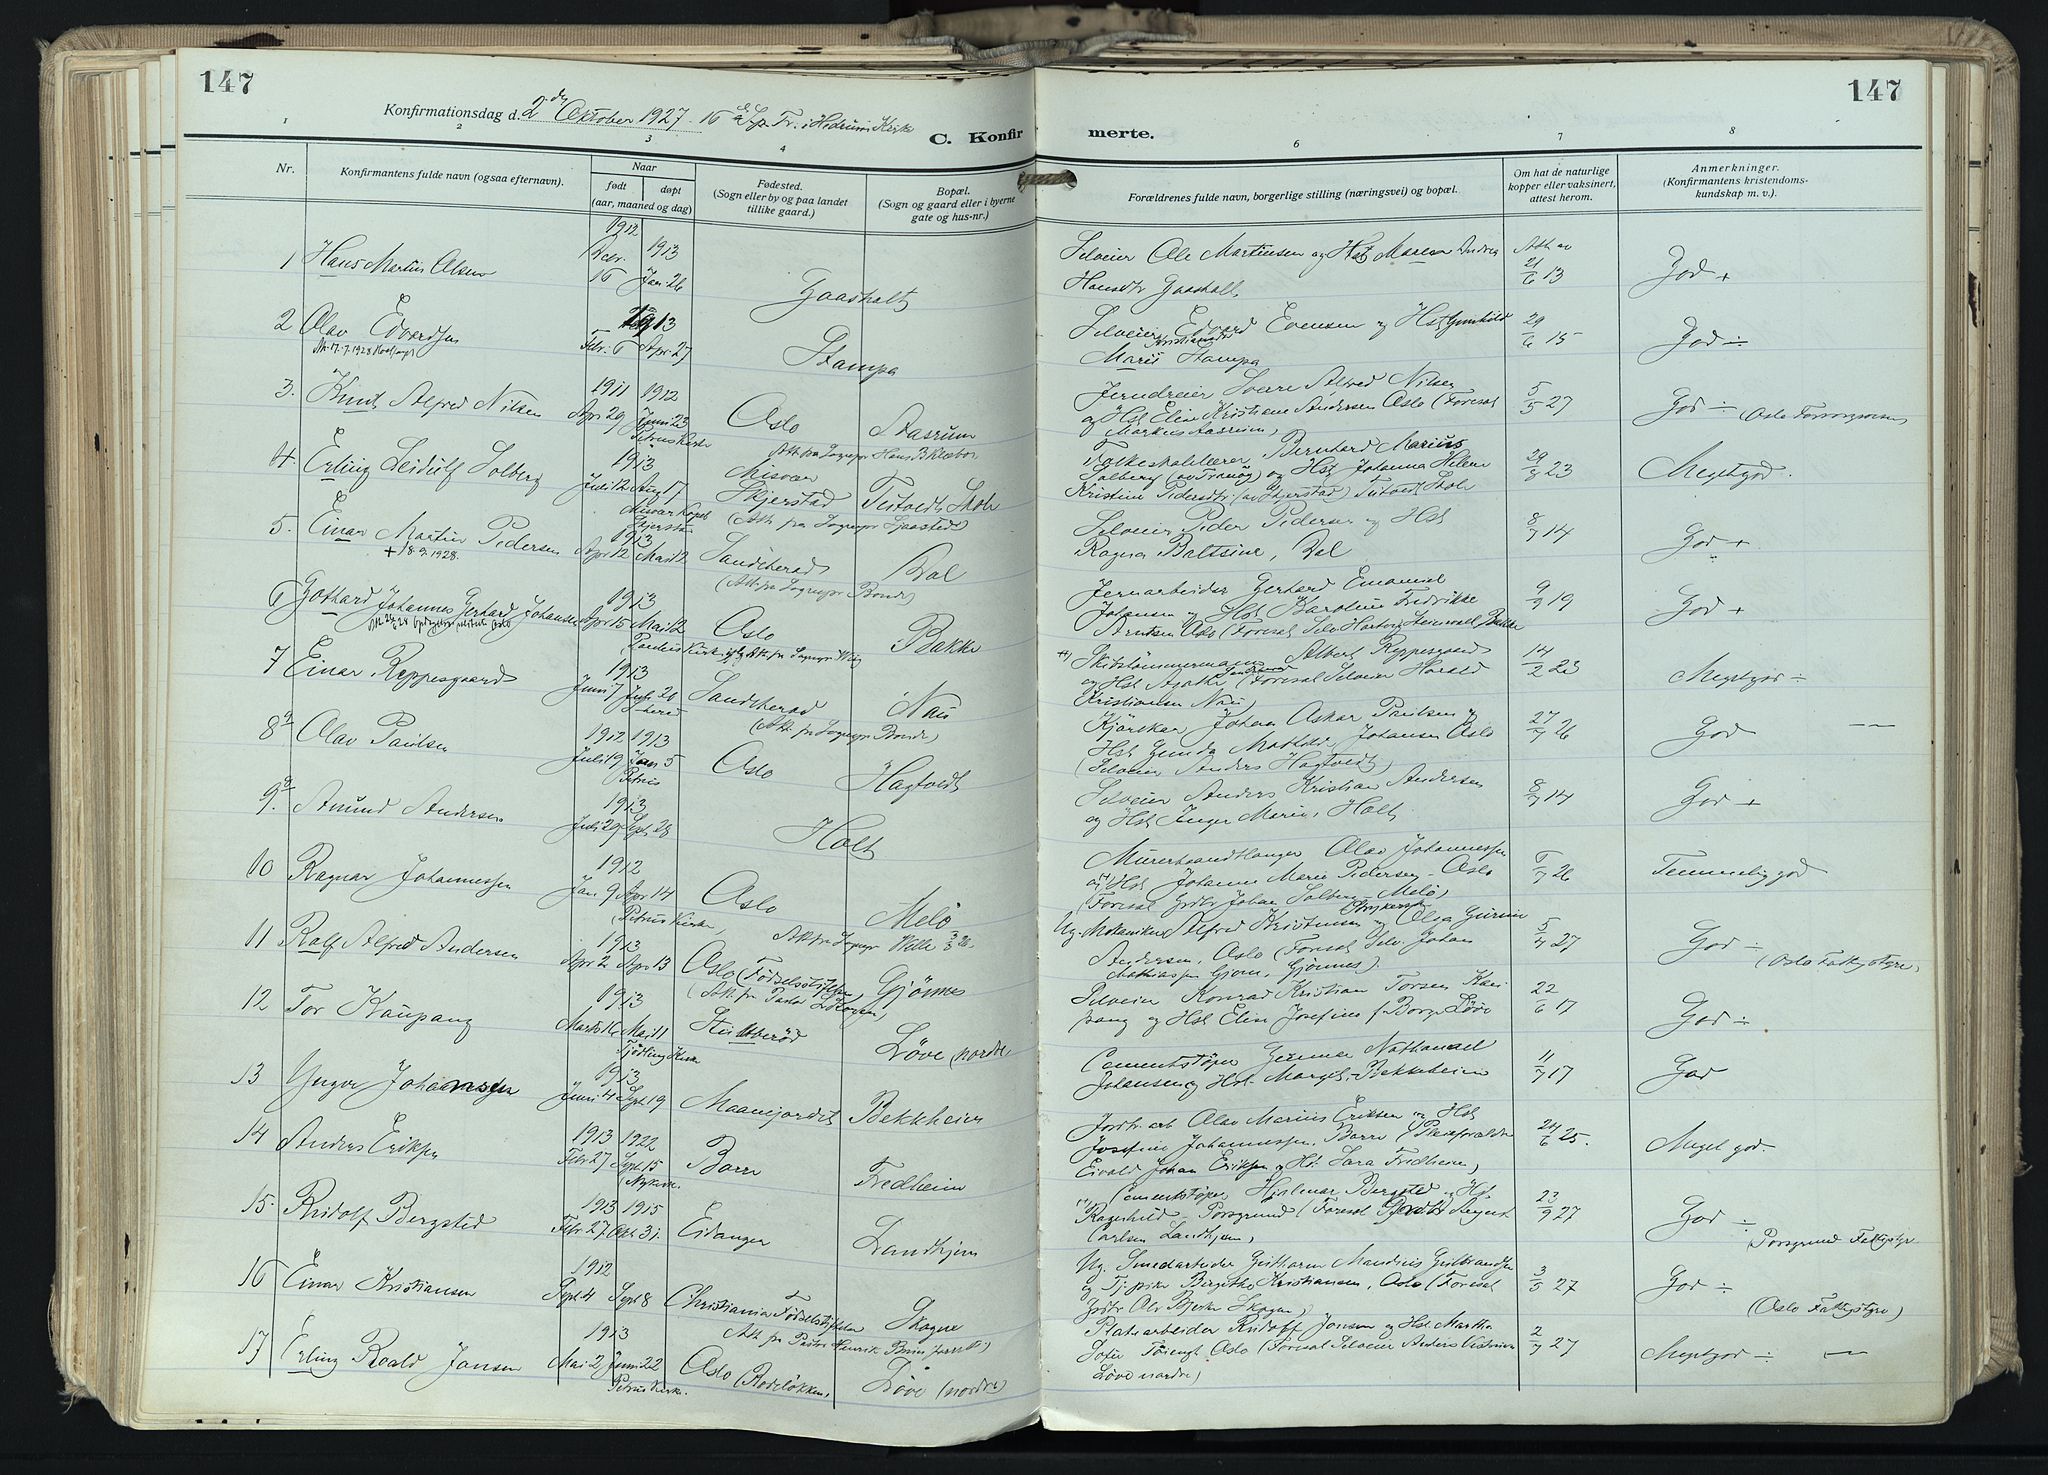 147
147
Konfirmationsdag d. 2den Oktober 1927 - 16 Tr. i Hedrum Kirke
C. Konfir merte.
1 2 3 4 5 6 7 8
Nr.
Konfirmantens fulde navn (ogsaa efternavn).
Naar
født døpt
(aar, maaned og dag)
Fødested.
(Sogn eller by og paa landet
tillike gaard.)
Bopæl.
(Sogn og gaard eller i byerne
gate og hus-nr.)
Forældrenes fulde navn, borgerlige stilling (næringsvei) og bopæl.
Om hat de naturlige
kopper eller vaksinert,
attest herom.
Anmerkninger.
(Konfirmantens kristendoms-
kundskap m. v.).
1912
1 Hans Martin Olsen Decbr. 16 1913 Jan. 26 Gaasholt
Selveier Ole Martinsen og Hst Maren Andrea
Hansdtr Gaasholt 21/6 13 God +
2 Olav Edvardsen Febr. 6 1913 Apr. 27 Stampa
Selveier Edvard Evensen og Hst Gunhild
Marie Kristiansdtr Stampa 29/6 15 God ÷
3. Knut Alfred Nilsen 1911 Apr 29 1912 Juni 23 Petrus Kirke Oslo Aasrum
Jerndreier Sverre Alfred Nilsen
og Hst Elise Kristiane Andersen Oslo (Foresat
Markus Aasrum) 5/5 27 God ÷ (Oslo
4. Erling Leidulf Solberg 1913 Juli 12 Aug 17 Misvær Skjerstad Tistvedt Skole
Folkeskolelærer Bernhard Marius
Solberg (av Tranøy) og Hst Johanna Helene
Kristine Pedersdtr (av Skjerstad) Tistvedt Skole 29/8 23 Megetgod
5. Einar Martin Pedersen 1913 Apr 12 Mai 12 Sandeherad Dal
+18.9.1928.
(Att. fra Sogнepr Bonde)
Selveier Peder Pedersen og Hst
Ragna Baltsine, Dal 8/7 14 God +
6 Gothard Johannes Gerhard Johansen 1913 Apr 15 Mai 12 Oslo Bakke
Jernarbeider Gerhard Emanuel
Johansen og Hst Karoline Fredrikke
Arntsen Oslo (Foresat Selv. 9/9 19 God +
7 Einar Reppesgaard 1913 Juni 7 Juli 20 Sandeherad Nau
(Att. fra Sognepr Bonde)
Skibstømmermann Albert Reppesgaard
og Hst Agathe (Foresat Selveier Harald
Kristiansen Nau) 14/2 23 Megetgod ÷
8 Olav Paulsen 1912 Juli 19 1913 Jan 5 Petrus Oslo Hagtvedt
Kjørekar Johan Oskar Paulsen og
Hst Gunda Mathilde Johansen Oslo
(Selveier Anders Hagtvedt) 27/7 26 God —
9. Amund Andersen 1913 Juli 29 Sept 28 Holt
Selveier Anders Kristian Andersen
og Hst Inger Marie, Holt 8/7 14 God +
10 Ragnar Johannessen 1912 Jan. 9 Apr 14 (Petrus Kirke) Oslo Melø
Murerhaandlanger Olav Johannessen
og Hst Johanne Marie Pedersen - Oslo
(Foresat Johan Solberg Melø) 6/7 26 Temmelig god
11 Ralf Alfred Andersen 1913 Apr 2 Apr 13 Oslo (Fødselsstiftelsen Gjønnes
Ug. Mekaniker Alfred Kristensen og Olga Gurine
Andersen, Oslo (Foresat Selv. Johan
Mathiassen Gjønnes). 5/7 27 God ÷ (Oslo Fattigstyre)
12 Tor Kaupang 1913 Marts 16 Mai 11 Tjødling Kirke Løve (nordre
Selveier Konrad Kristian Torsen Kau-
pang og Hst Elise Josefine f. Borge Løve 22/6 17 God ÷
13 Yngve Johannsen 1913 Juni 4 Sept 19 Maanejordet Bekkheim
Cementstøper Gunnar Nathanael
Johansen og Hst. Margit, Bekkeheim 11/7 17 God
14 Anders Eriksen 1913 Febr 27 1922 Sept. 15 (Nykirke. Borre Fredheim
Jordbr. arb Olav Marius Eriksen og Hst
Josefine Johannessen. Borre (Pleieforældre
Eivald Johan Eriksen og Hst. Sara Fredheim) 24/6 25. Meget god.
15. Rudolf Bergsted 1913 Febr 27 1915 Okt 31 Eidanger Landhjem
Cementstøper Hjalmar Bergsted og Hst.
Ragnhild Porsgrund (Foresat
Carlsen Landhjem) 23/9 27 God ÷ Porsgrund Fattigstyre
16 Einar Kristiansen 1912 Sept. 4 Sept 8 Christiania Fødselsstiftelse Skogne
Ug. Smedarbeider Guttorm Maudius Gulbrandsen
og Tj. pike Bergitte Kristiansen, Oslo (Foresat
Ole Bjerke Skogan) 3/5 27 God ÷ (Oslo Fattigstyre)
17 Erling Roald Jansen 1913 Mai 2 Juni 22 Petrus Kirke. Oslo (Rodeløkken) Løve (nordre)
Platearbeider Rudolf Jansen og Hst Martha
Sofie Oslo (Foresat Selveier Anders
Løve nordre) 2/7 27 Megetgod ÷ —